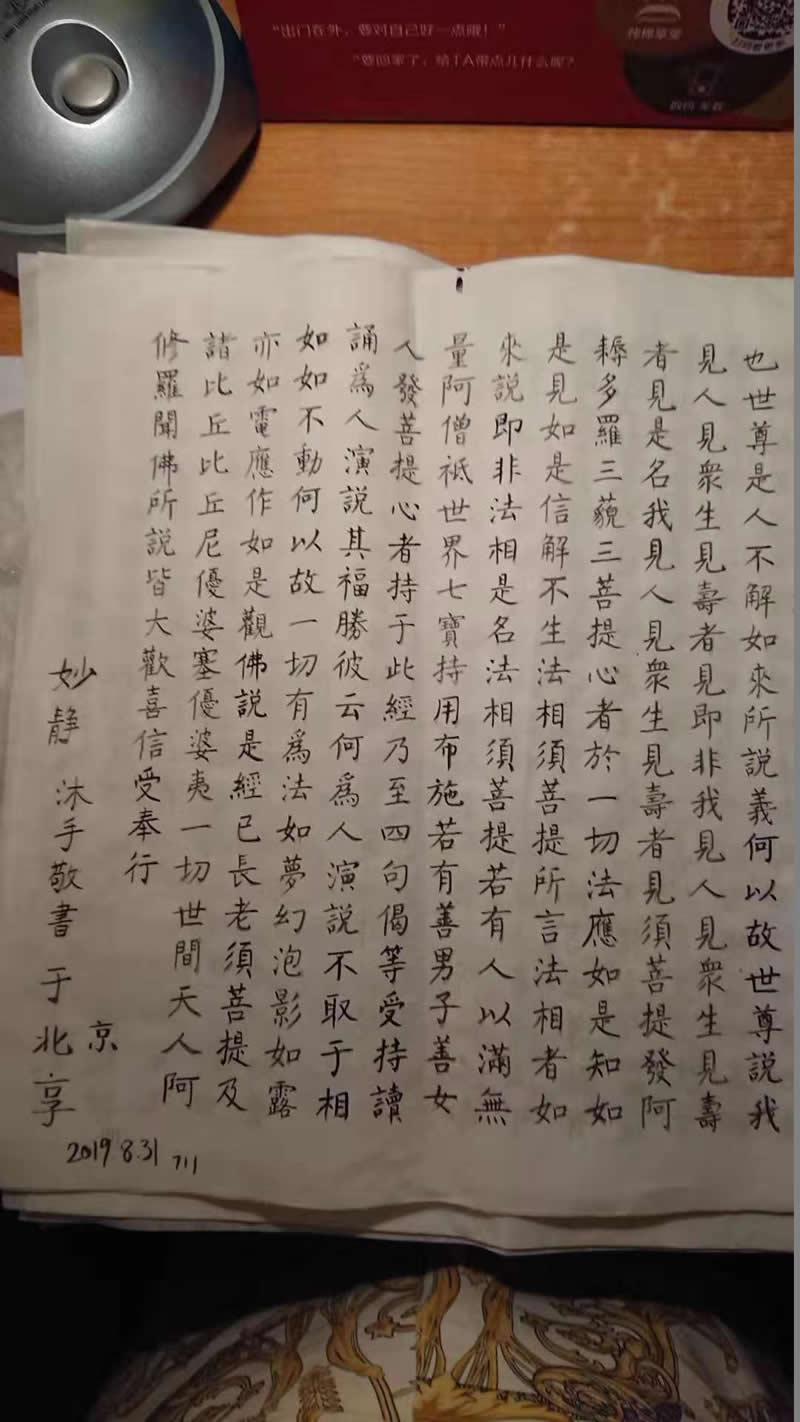 也世尊是人不解如來所說義何以故世尊說我
見人見衆生見壽者見即非我見人見衆生見壽
者見是名我見人見衆生見壽者見須菩提發阿
耨多羅三藐三菩提心者於一切法應如是知如
是見如是信解不生法相須菩提所言法相者如
來說即非法相是名法相須菩提若有人以滿無
量阿僧祇世界七寶持用布施若有善男子善女
人發菩提心者持于此經乃至四句偈等受持讀
誦爲人演說其福勝彼云何爲人演說不取于相
如如不動何以故一切有爲法如夢幻泡影如露
亦如電應作如是觀佛說是經已長老須菩提及
諸比丘比丘尼優婆塞優婆夷一切世間天人阿
修羅聞佛所說皆大歡喜信受奉行
妙静 沐手敬書 于北享
京
2019 8.31 711
"出门在外，要对自己好一点哦！"
"要回家了，给TA带点儿什么呢？"